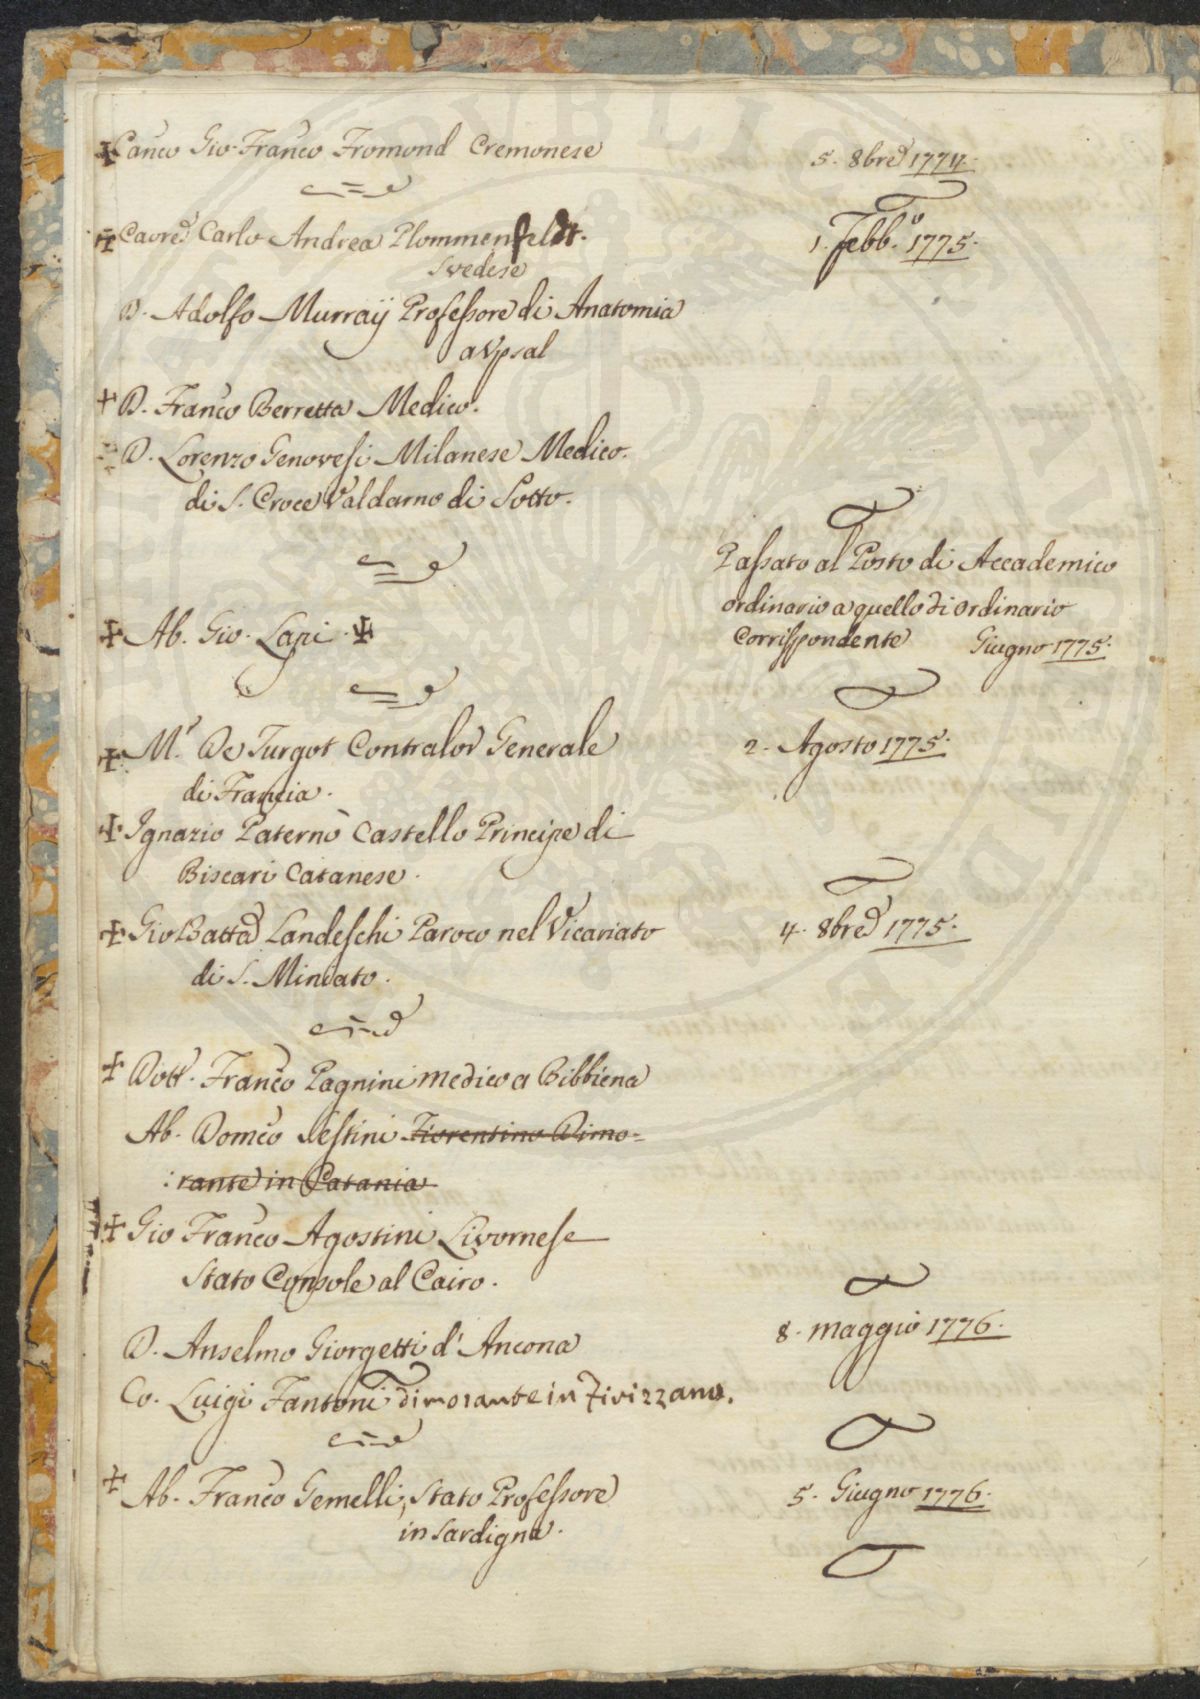 ✠ Canco Gio. Franco Fromond Cremonese 5. 8bre 1774.
✠ Cavre Carlo Andrea Plommenfeldt. 1. Febbo. 1775.
Svedese
D. Adolfo Murraÿ Professore di Anatomia
a Upsal
+ D. Franco Berretta Medico.
D. Lorenzo Genovesi Milanese Medico.
di S. Croce Valdarno di Sotto.
Passato al Posto di Accademico
ordinario a quello di ordinario
✠ Ab. Gio. Lapi. ✠ Corrispondente Giugno 1775.
✠ Mr. De Turgot Contralor Generale 2. Agosto 1775.
di Francia.
✠ Ignazio Paternò Castello Principe di
Biscari Catanese.
✠ Gio Batta Landeschi Paroco nel Vicariato 4. 8bre 1775.
di S. Miniato.
✠ Dott. Franco Pagnini medico a Bibbiena
Ab. Domco Sestini Fiorentino Dimo=
:rante in Catania
✠ Gio Franco Agostini Livornese
Stato Console al Cairo.
D. Anselmo Giorgetti d'Ancona 8. maggio 1776.
Co. Luigi Fantoni dimorante in Fivizzano.
✠ Ab. Franco Gemelli, Stato Professore 5. Giugno 1776.
in Sardigna.